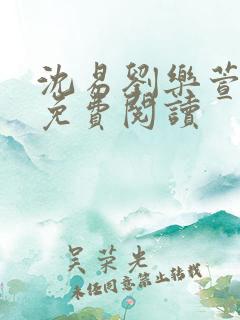 沈易劉樂萱
免費閱讀
吴荣光
未经同意禁止转载